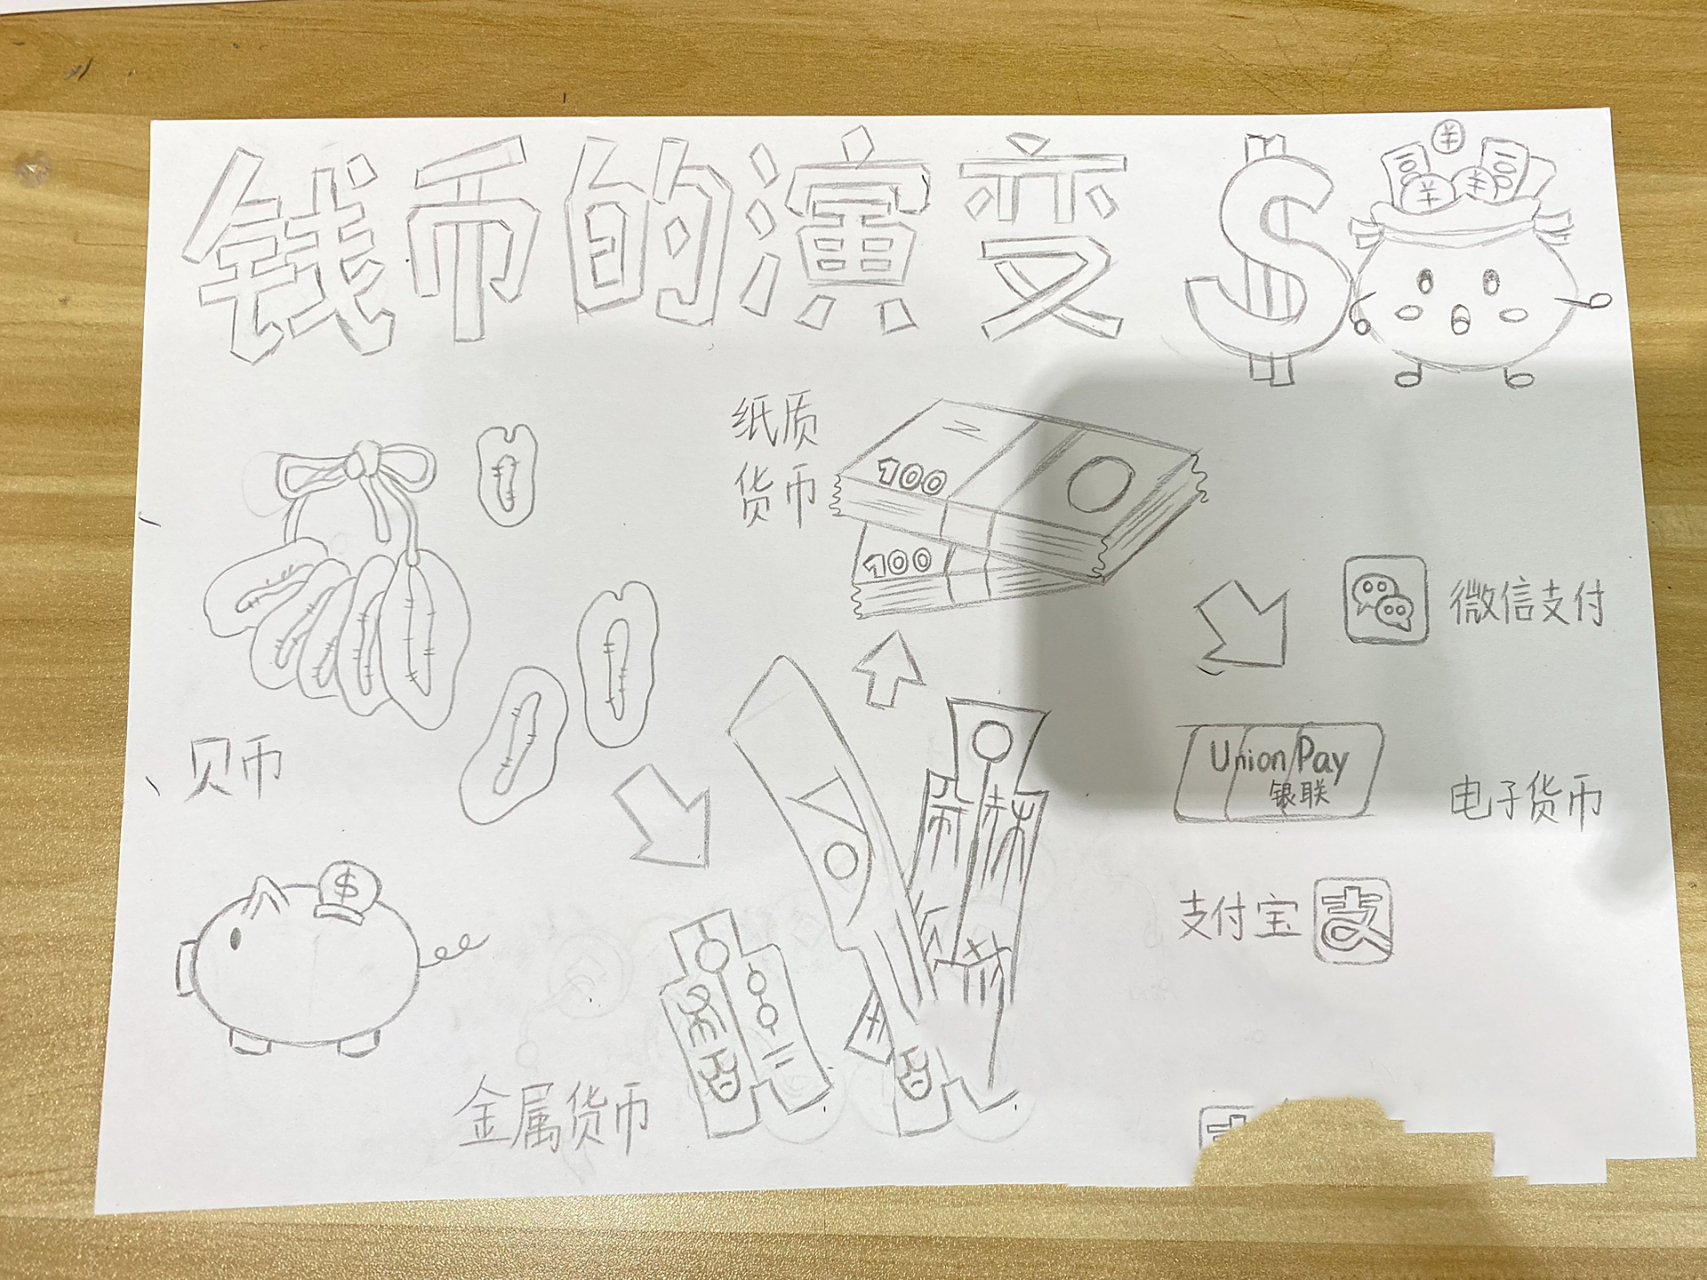 钱币的演变
$
¥
¥
¥
纸质
货币
100
100
微信支付
UnionPay
银联
电子货币
支付宝
支
贝币
$
金属货币